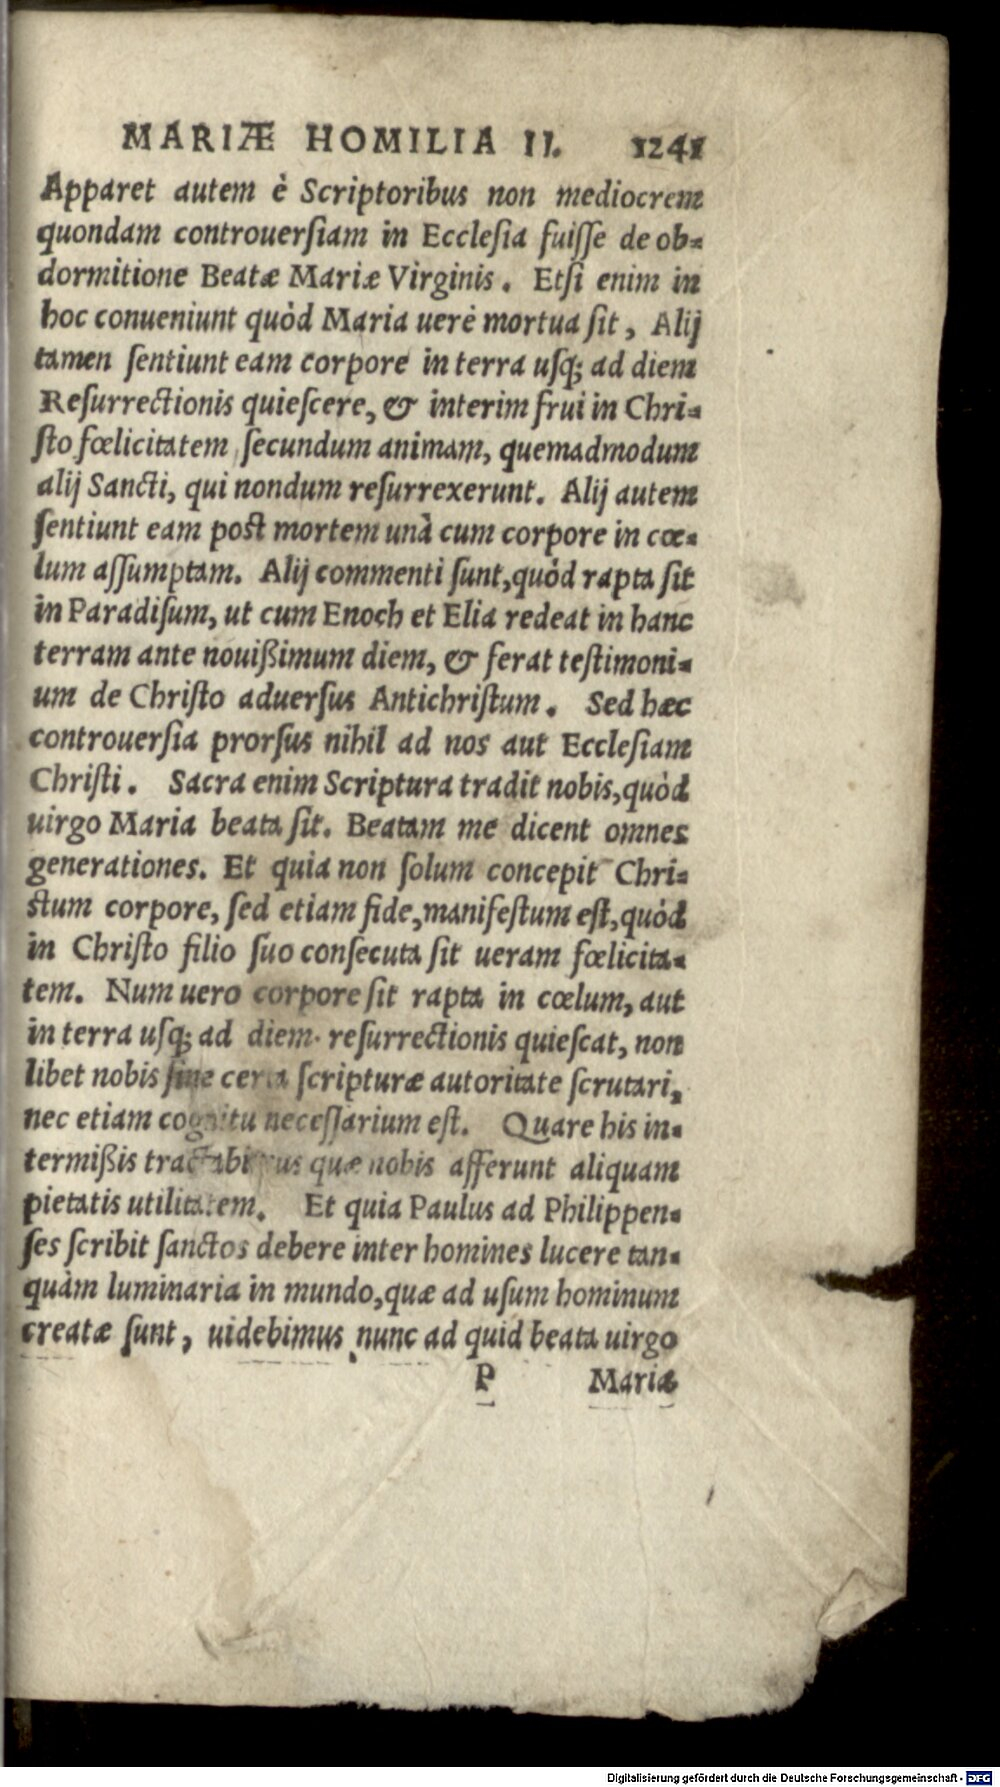 MARIÆ HOMILIA II. 1241
Apparet autem è Scriptoribus non mediocrem
quondam controuerſiam in Eccleſia fuiſſe de ob-
dormitione Beatæ Mariæ Virginis. Etſi enim in
hoc conueniunt quòd Maria uerè mortua ſit, Alij
tamen ſentiunt eam corpore in terra uſq; ad diem
Reſurrectionis quieſcere, & interim frui in Chri-
ſto fœlicitatem ſecundum animam, quemadmodum
alij Sancti, qui nondum reſurrexerunt. Alij autem
ſentiunt eam poſt mortem unà cum corpore in cœ-
lum aſſumptam. Alij commenti ſunt, quòd rapta ſit
in Paradiſum, ut cum Enoch et Elia redeat in hanc
terram ante nouißimum diem, & ferat teſtimoni-
um de Chriſto aduerſus Antichriſtum. Sed hæc
controuerſia prorſus nihil ad nos aut Eccleſiam
Chriſti. Sacra enim Scriptura tradit nobis, quòd
uirgo Maria beata ſit. Beatam me dicent omnes
generationes. Et quia non ſolum concepit Chri-
ſtum corpore, ſed etiam fide, manifeſtum eſt, quòd
in Chriſto filio ſuo conſecuta ſit ueram fœlicita-
tem. Num uero corpore ſit rapta in cœlum, aut
in terra uſq; ad diem reſurrectionis quieſcat, non
libet nobis ſine certa ſcripturæ autoritate ſcrutari,
nec etiam cognitu neceſſarium eſt. Quare his in-
termißis tractabimus quæ nobis afferunt aliquam
pietatis utilitatem. Et quia Paulus ad Philippen-
ſes ſcribit ſanctos debere inter homines lucere tan-
quàm luminaria in mundo, quæ ad uſum hominum
creatæ ſunt, uidebimus nunc ad quid beata uirgo
P Mariæ
Digitalisierung gefördert durch die Deutsche Forschungsgemeinschaft - DFG